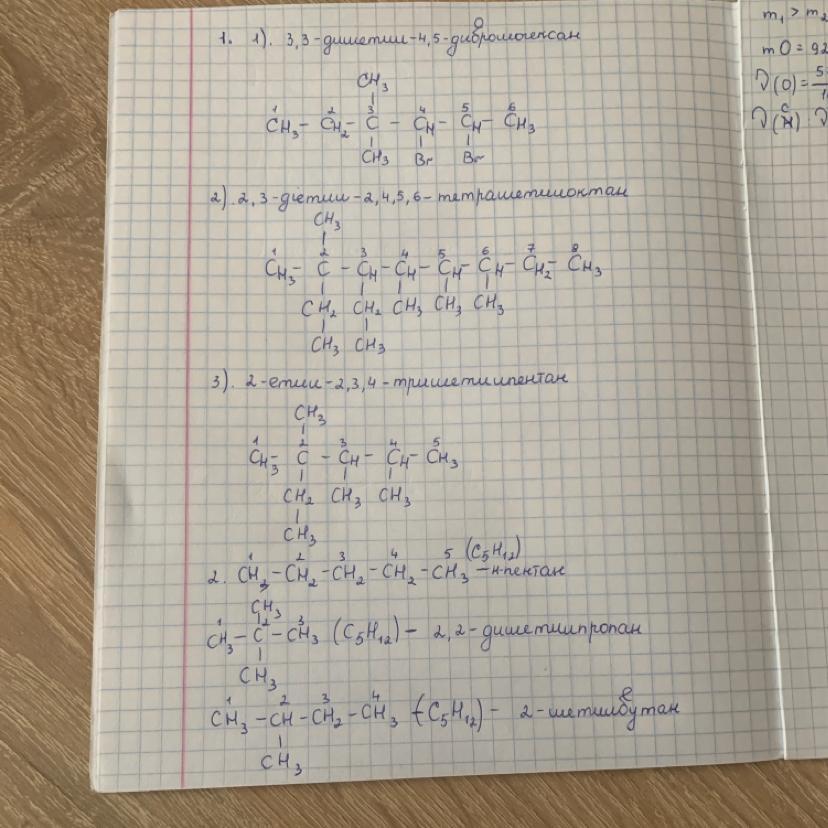 1. 1). 3,3-диметил-4,5-дибромогексан
CH₃
¹CH₃ - ²CH₂ - ³C - ⁴CH - ⁵CH - ⁶CH₃
CH₃ Br Br
2). 2,3-діетил-2,4,5,6-тетраметилоктан
CH₃
¹CH₃ - ²C - ³CH - ⁴CH - ⁵CH - ⁶CH - ⁷CH₂ - ⁸CH₃
CH₂ CH₂ CH₃ CH₃ CH₃
CH₃ CH₃
3). 2-етил-2,3,4-триметилпентан
CH₃
¹CH₃ - ²C - ³CH - ⁴CH - ⁵CH₃
CH₂ CH₃ CH₃
CH₃
2. ¹CH₃ - ²CH₂ - ³CH₂ - ⁴CH₂ - ⁵CH₃ (C₅H₁₂) - н-пентан
CH₃
¹CH₃ - ²C - ³CH₃ (C₅H₁₂) - 2,2-диметилпропан
CH₃
¹CH₃ - ²CH - ³CH₂ - ⁴CH₃ (C₅H₁₂) - 2-метилбутан
CH₃
m₁ > m₂
mO = 92
ν(O) =